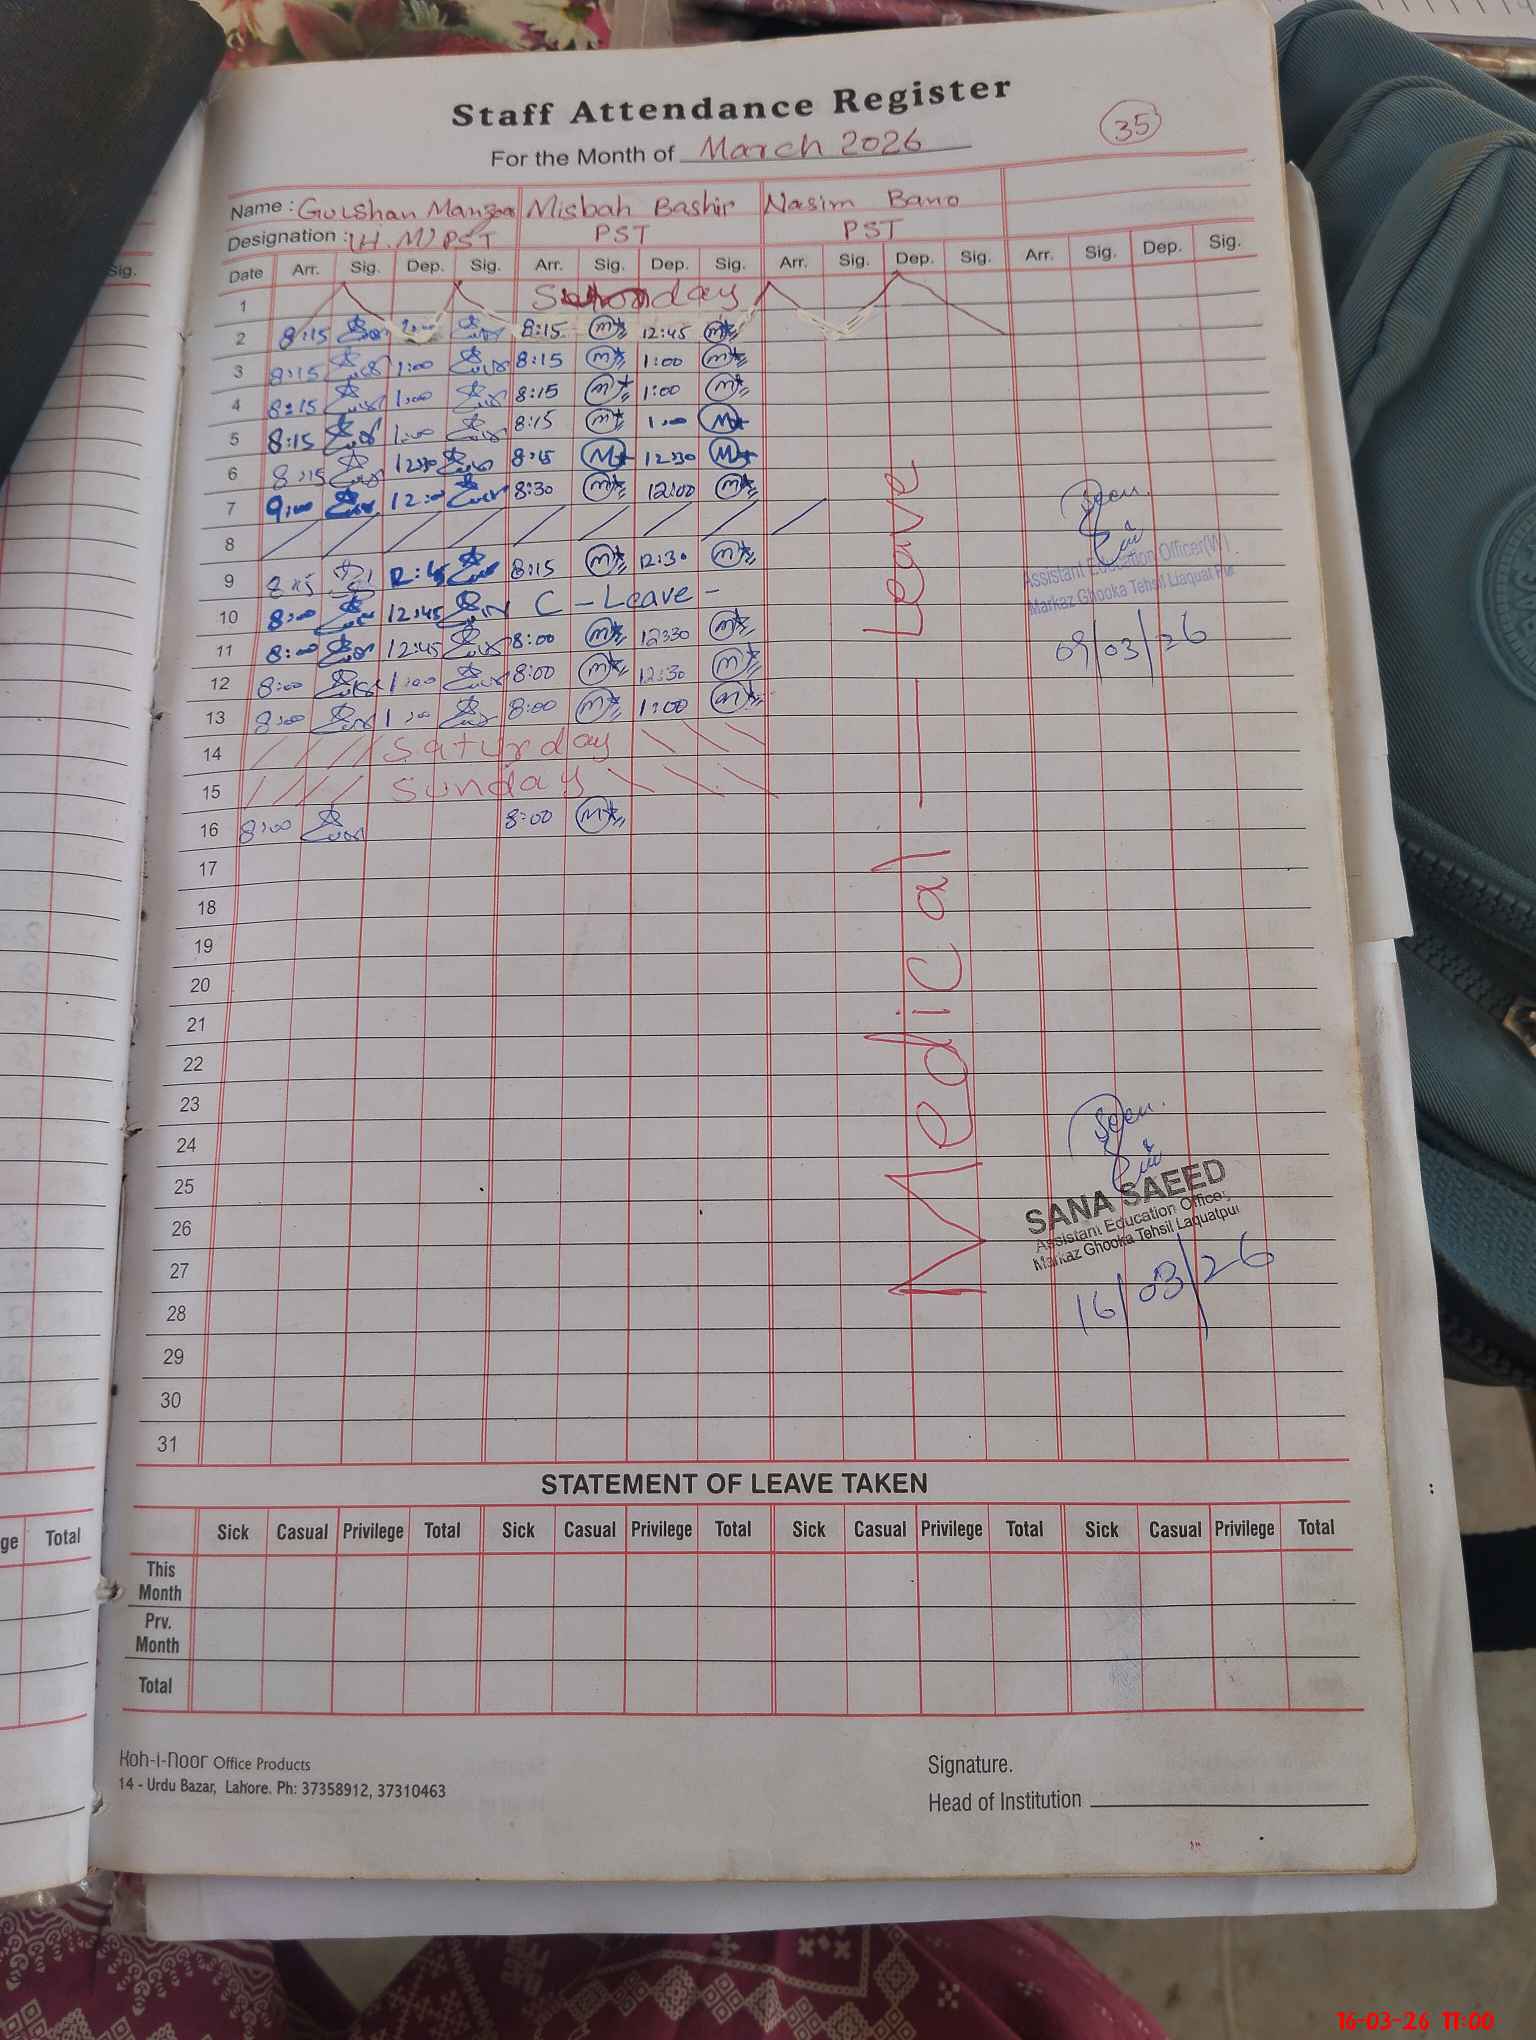 Staff Attendance Register
35
For the Month of March 2026
Name : Gulshan Manzoor Misbah Bashir Nasim Bano
Designation : (H.M) PST PST PST
Sig. Date Arr. Sig. Dep. Sig. Arr. Sig. Dep. Sig. Arr. Sig. Dep. Sig. Arr. Sig. Dep. Sig.
1 Sunday
2 8:15 8:15 12:45
3 8:15 1:00 8:15 1:00
4 8:15 1:00 8:15 1:00
5 8:15 1:00 8:15 1:00
6 8:15 12:30 8:15 12:30
7 9:00 12:00 8:30 12:00
8
9 8:15 12:45 8:15 12:30
10 8:00 12:45 C - Leave -
11 8:00 12:45 8:00 12:30
12 8:00 1:00 8:00 12:30
13 8:00 1:00 8:00 1:00
14 Saturday
15 Sunday
16 8:00 8:00
17
18
19
20
21
22
23
24
25
26
27
28
29
30
31
Medical — Leave
Seen.
Assistant Education Officer(W)
Markaz Ghooka Tehsil Liaquat Pur
09/03/26
Seen.
SANA SAEED
Assistant Education Officer
Markaz Ghooka Tehsil Liaquatpur
16/03/26
STATEMENT OF LEAVE TAKEN
ge Total Sick Casual Privilege Total Sick Casual Privilege Total Sick Casual Privilege Total Sick Casual Privilege Total
This
Month
Prv.
Month
Total
Koh-i-Noor Office Products
14 - Urdu Bazar, Lahore. Ph: 37358912, 37310463
Signature.
Head of Institution
16-03-26 11:00